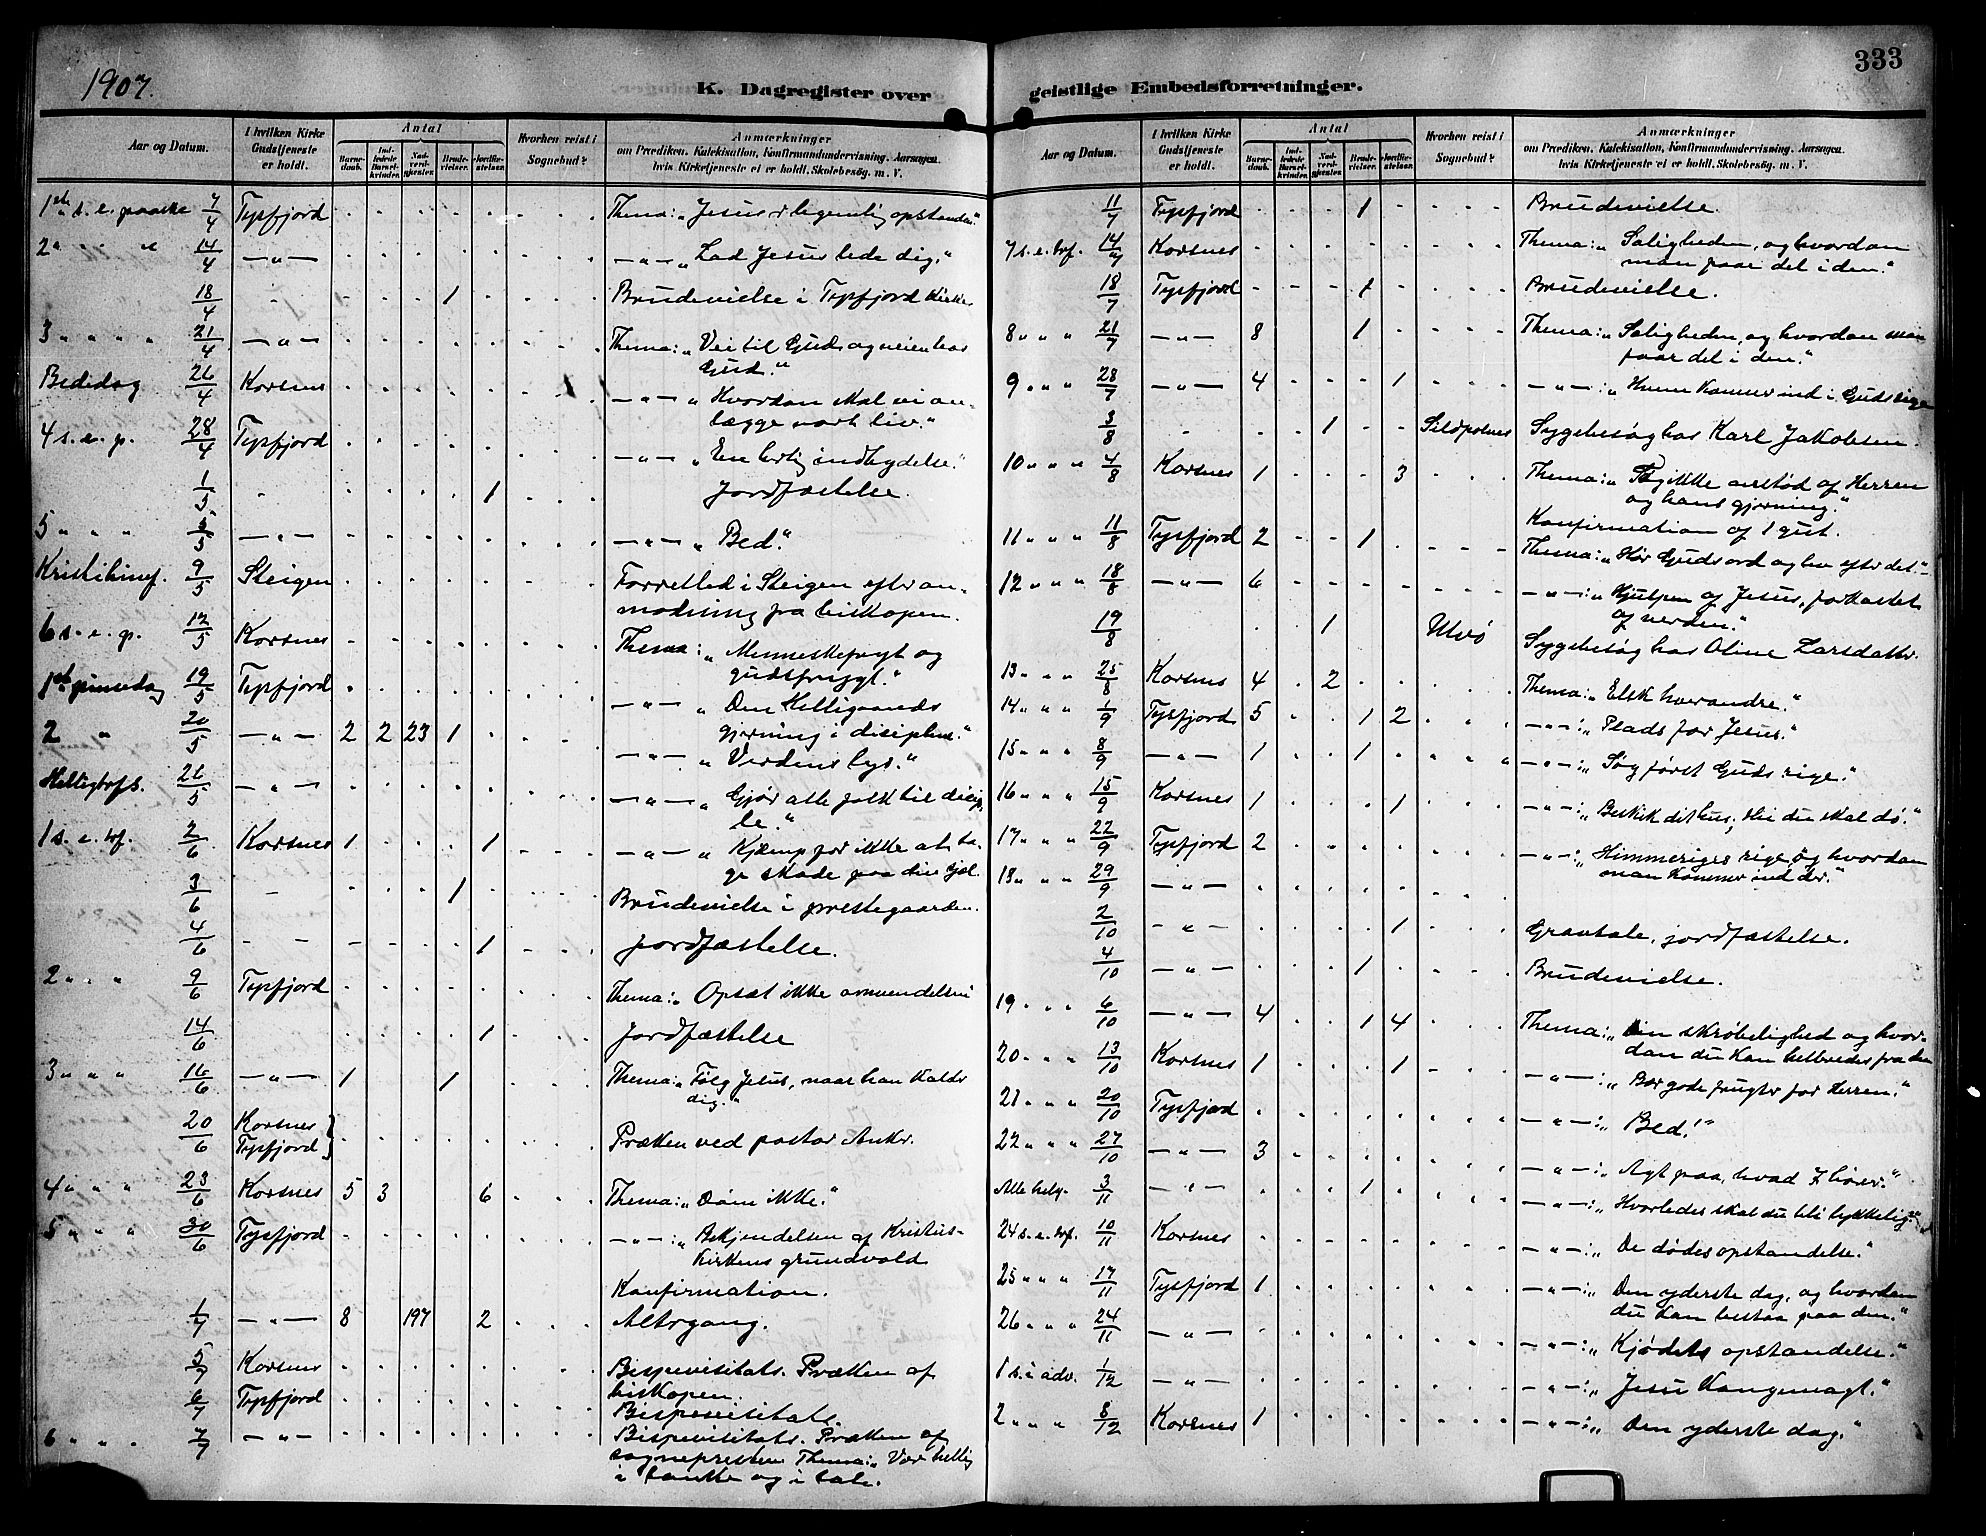 1907.
K. Dagregister over
Aar og Datum.
I hvilken Kirke Gudstjeneste er holdt.
Antal
Barnedaab.
Indledede Barselkvinder.
Nadverdgjester.
Brudevielser.
Jordfæstelser.
Hvorhen reist i Sognebud?
Anmærkninger
om Prædiken, Katekisation, Konfirmandundervisning, Aarsagen,
hvis Kirketjeneste ei er holdt, Skolebesøg m. V.
1ste s. e. paaske 7/4 Tysfjord Thema: „Jesus er legemlig opstanden"
2 " " " 14/4 —"— —"— „Lad Jesus lede dig."
18/4 1 Brudevielse i Tysfjord kirke
3 " " " 21/4 —"— Thema: „Vei til Gud og veien hos
Gud."
Bededag 26/4 Korsnes —"— „Hvordan skal vi an-
lægge vort liv."
4 s. e. p. 28/4 Tysfjord —"— „En herlig indbydelse."
1/5 1 Jordfæstelse.
5 " " " 5/5 —"— —"— „Bed."
Kristi himf. 9/5 Steigen Forretted i Steigen efter an-
modning fra biskopen.
6 s. e. p. 12/5 Korsnes Thema: „Menneskefrygt og
gudsfrygt."
1ste pinsedag 19/5 Tysfjord —"— „Den Helligaands
gjerning i disciplene."
2 " 20/5 —"— 2 2 23 1 —"— „Verdens lys."
Helligtrefs. 26/5 —"— —"— „Gjør alle folk til discip-
le."
1 s. e. tref. 2/6 Korsnes 1 1 —"— „Kjæmp for ikke at ta-
ge skade paa din sjæl.
3/6 1 Brudevielse i prestegaarden.
4/6 1 Jordfæstelse.
2 " " 9/6 Tysfjord Thema: „Opsæt ikke omvendelsen
14/6 1 Jordfæstelse
3 " " " 16/6 —"— 1 1 Thema: „Følg Jesus, naar han kalder
dig."
20/6 Korsnes
Tysfjord } Præken ved pastor Anker.
4 " " " 23/6 Korsnes 5 3 6 Thema: „Døm ikke."
5 " " " 30/6 Tysfjord —"—: „Bekjendelsen af Kristus-
kirkens grundvold
Konfirmation.
1/7 —"— 8 197 2 Altergang.
5/7 Korsnes Bispevisitats. Præken af
biskopen.
6/7 Tysfjord Bispevisitats.
6 " " " 7/7 —"— Bispevisitats. Præken af
sognepresten Thema: „Vær hellig
i tanke og i tale.
333
geistlige Embedsforretninger.
Aar og Datum.
I hvilken Kirke Gudstjeneste er holdt.
Antal
Barnedaab.
Indledede Barselkvinder.
Nadverdgjester.
Brudevielser.
Jordfæstelser.
Hvorhen reist i Sognebud?
Anmærkninger
om Prædiken, Katekisation, Konfirmandundervisning, Aarsagen,
hvis Kirketjeneste ei er holdt, Skolebesøg m. V.
11/7 Tysfjord 1 Brudevielse.
7 s. e. tref. 14/7 Korsnes Thema: „Saligheden, og hvordan
man faar del i den."
18/7 Tysfjord 1 Brudevielse.
8 " " 21/7 —"— 8 1 Thema: „Saligheden, og hvordan man
faar del i den."
9 " " 28/7 —"— 4 1 —"—: „Hvem kommer ind i Guds rige
3/8 1 Sildpolnes Sygebesøg hos Karl Jakobsen.
10 " " " 4/8 Korsnes 1 3 Thema: „Tag ikke anstød af Herren
og hans gjerning."
Konfirmation af 1 gut.
11 " " " 11/8 Tysfjord 2 1 Thema: „Hør Guds ord og lev efter det."
12 " " " 18/8 —"— 6 —"—: „Hjælpen af Jesus, forkastet
af verden."
19/8 1 Ulvø Sygebesøg hos Oline Larsdatter.
13 " " 25/8 Korsnes 4 2 Thema: „Elsk hverandre."
14 " " 1/9 Tysfjord 5 1 2 —"—: „Plads for Jesus."
15 " " 8/9 —"— 1 1 —"—: „Søg først Guds rige."
16 " " " 15/9 Korsnes 1 1 —"—: „Beskik dit hus, thi du skal dø."
17 " " " 22/9 Tysfjord 2 —"—: „Himmeriges rige, og hvordan
man kommer ind der."
18 " " 29/9 —"—
2/10 —"— 1 Gravtale, jordfæstelse.
4/10 —"— 1 Brudevielse.
19 " " 6/10 —"— 4 1 4 Thema: „Din skrøbelighed og hvor-
dan du kan helbredes fra den
20 " " " 13/10 Korsnes 1 1 —"—: „Bær gode frugter for Herren."
21 " " " 20/10 Tysfjord —"—: „Bed!"
22 " " " 27/10 —"— 3 —"—: „Agt paa, hvad I hører."
Alle helg. 3/11 —"— 1 —"—: „Hvorledes skal du bli lykkelig."
24 s. e. tref. 10/11 Korsnes —"—: „De dødes opstandelse."
25 " " " 17/11 Tysfjord 1 —"—: „Den yderste dag, og hvordan
du kan bestaa paa den."
26 " " " 24/11 —"— —"—: „Kjødets opstandelse."
1 s. i adv. 1/12 —"— —"—: „Jesu kongemagt."
2 " " " 8/12 Korsnes 1 —"—: „Den yderste dag."